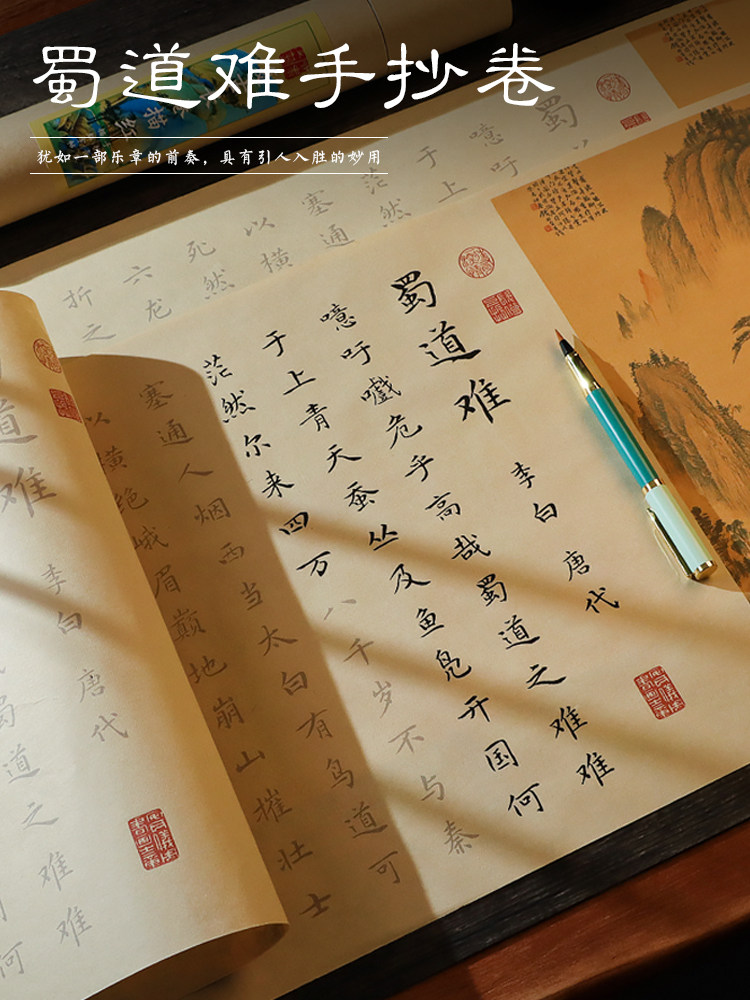 蜀道难手抄卷
犹如一部乐章的前奏，具有引人入胜的妙用
蜀
噫吁
于上
茫然
塞通
以横
死然
六龙
折之
蜀道难
李白 唐代
噫吁嚱危乎高哉蜀道之难难
于上青天蚕丛及鱼凫开国何
茫然尔来四万八千岁不与秦
塞通人烟西当太白有鸟道可
以横绝峨眉巅地崩山摧壮士
道难
李白 唐代
蜀道之难难
何